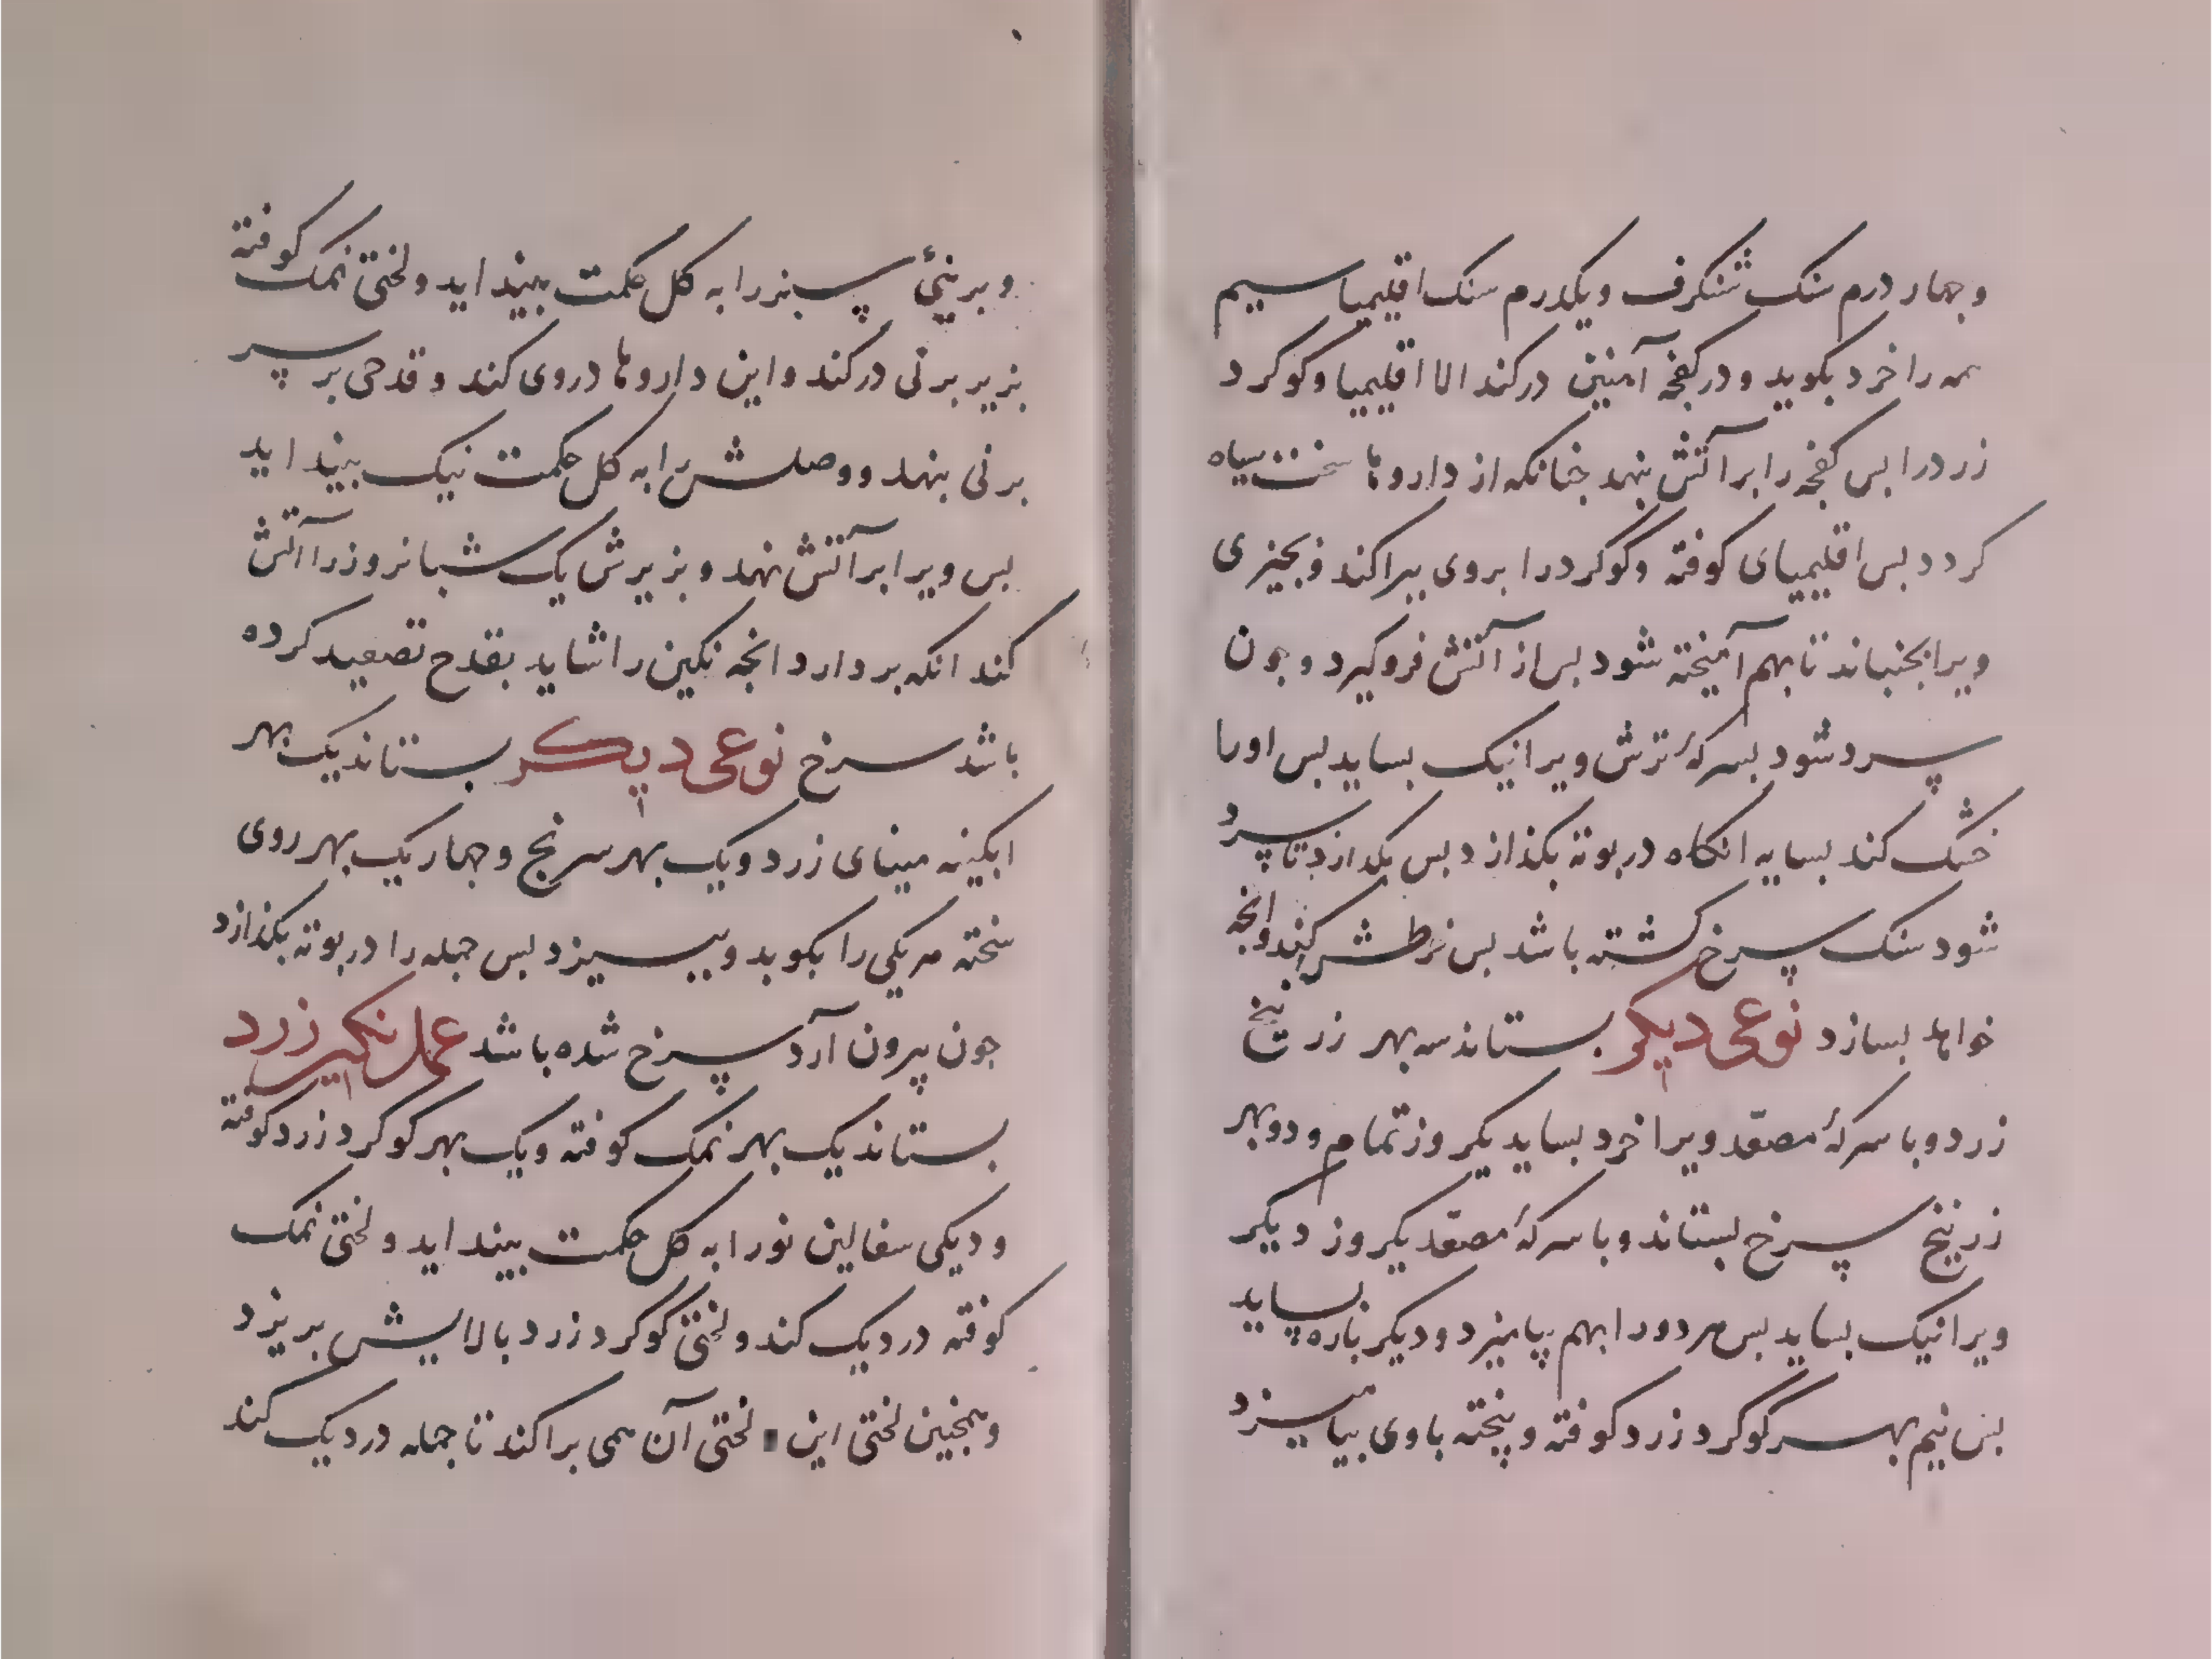 وجهار درم سنک شنکرف ویکدرم سنک اقلیمیا سیم
همه را خرد بکوبد ودر کفچه آهنین درکند الا اقلیمیا وکوکرد
زرد را بس کفچه را بر آتش بنهد جنانکه از داروها سخت سیاه
کردد بس اقلیمیای کوفته وکوکرد را بروی ببراکند وبجیزی
ویرا بجنباند تا بهم آمیخته شود بس از آتش فروکیرد وجون
سرد شود بسرکهٔ ترش ویرا نیک بساید بس اورا
خشک کند بسایه انکاه در بوته بکذازد بس بکذارد تا سرد
شود سنک سرخ کشته باشد بس خرطش کند وانجه
خواهد بسازد نوعی دیکر بستاند سه بهر زرنیخ
زرد وبا سرکهٔ مصعّد ویرا خرد بساید یکروز تمام ودو بهر
زرنیخ سرخ بستاند وبا سرکهٔ مصعّد یکروز دیکر
ویرا نیک بساید بس هردو را بهم بیامیزد ودیکرباره بساید
بس نیم بهر کوکرد زرد کوفته وبیخته با وی بیامیزد
وبرنیٔ سبز را به کل حکمت بینداید ولختی نمک کوفته
بزیر برنی درکند واین داروها دروی کند وقدحی بر سر
برنی بنهد ووصلش را به کل حکمت نیک بینداید
بس ویرا بر آتش نهد وبزیرش یک شبانروز را آتش
کند انکه بردارد انجه نکین را شاید بقدح تصعید کرده
باشد سرخ نوعی دیکر بستاند یک بهر
ابکینه مینای زرد ویک بهر سرنج وجهار یک بهر روی
سخته هریکی را بکوبد وببیزد بس جمله را در بوته بکذازد
جون بیرون آرد سرخ شده باشد عمل نکین زرد
بستاند یک بهر نمک کوفته ویک بهر کوکرد زرد کوفته
ودیکی سفالین نو را به کل حکمت بینداید ولختی نمک
کوفته در دیک کند ولختی کوکرد زرد بالایش بریزد
وهمجنین لختی این لختی آن همی براکند تا جمله در دیک کند